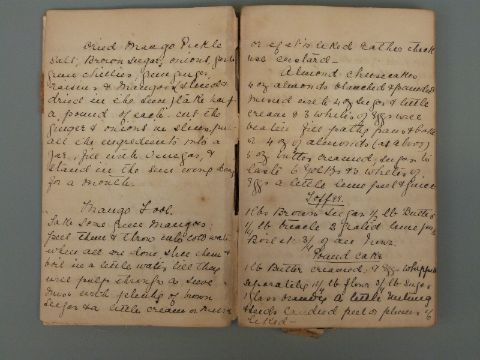 Dried Mango Pickle
Salt, Brown Sugar, onions, garlic
green chillies, green ginger,
raisins & Mangoes (sliced &
dried in the sun) take half
a pound of each. cut the
ginger & onions in slices, put
all the ingredients into a
Jar, fill with Vinegar, &
stand in the sun every day
for a month.
Mango Fool.
Take some green Mangoes,
peel them & throw into cold water
when all are done slice them &
boil in a little water, till they
will pulp through a sieve
mix with plenty of brown
Sugar & a little cream or
or if it is liked rather thick
use custard -
Almond cheesecakes
4 oz almonds blanched & pounded
mixed with 4 oz sugar & little
cream & 3 whites of Eggs well
beaten fill patty pans & bake
or 4 oz of almonds (as above)
3 oz butter creamed, sugar to
taste 6 yolks & 3 whites of
Eggs a little lime peel &
Toffy.
1 lb Brown Sugar 1/2 lb Butter
1/2 lb treacle 2 grated
Boil it 3/4 of an hour.
Pound cake
1 lb Butter creamed, 9 Eggs whipped
separately 1 1/4 lb flour 3/4 lb Sugar
1 Glass brandy A little nutmeg
candied peel or
liked -